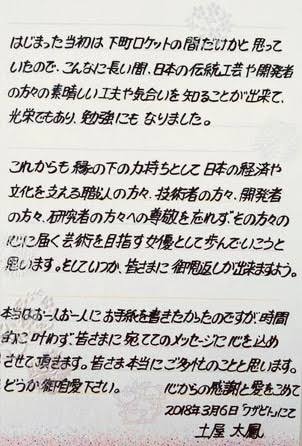 はじまった当初は下町ロケットの間だけかと思って
いたので、こんなに長い間、日本の伝統工芸や開発者
の方々の素晴しい工夫や気合いを知ることが出来て、
光栄でもあり、勉強にもなりました。
これからも縁の下の力持ちとして日本の経済や
文化を支える職人の方々、技術者の方々、開発者
の方々、研究者の方々への尊敬を忘れずその方々の
心に届く芸術を目指す女優として歩んでいこうと
思います。そしていつか、皆さまに御恩返しが出来ますよう。
本当はお一人お一人にお手紙を書きたかったのですが、時間
的に叶わず、皆さまに宛ててのメッセージに心を込め
させて頂きます。皆さま本当にご多忙のことと思います。
どうか御自愛下さい。 心からの感謝と愛をこめて
2018年3月6日「ナガピト」にて
土屋 太鳳